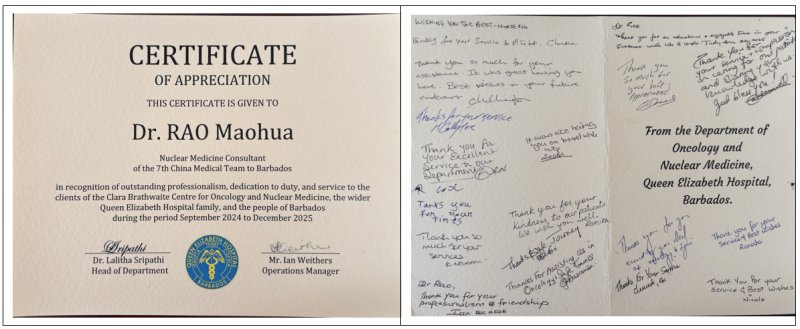 CERTIFICATE
OF APPRECIATION
THIS CERTIFICATE IS GIVEN TO
Dr. RAO Maohua
Nuclear Medicine Consultant
of the 7th China Medical Team to Barbados
in recognition of outstanding professionalism, dedication to duty, and service to the
clients of the Clara Brathwaite Centre for Oncology and Nuclear Medicine, the wider
Queen Elizabeth Hospital family, and the people of Barbados
during the period September 2024 to December 2025
Dr. Lalitha Sripathi
Head of Department
QUEEN ELIZABETH HOSPITAL
BARBADOS
Mr. Ian Weithers
Operations Manager
WISHING YOU THE BEST
Thanks for your Service
Thank you so much for your
assistance. It was great having you
here. Best wishes in your future
endeavors
Thanks for your service
Thank you for
your Excellent
Service to our
Department
RN
It was nice having
you on board with
us
Thank you for your
Kindness to our patients
We wish you well.
Thank you
so much for your
services
Thanks For Assisting us in
Oncology!
Dr Rao,
Thank you for your
professionalism & friendship
Dr Rao
Thank you for an educational & enjoyable time in your
Thank you
so much for
your help
Appreciated
Thank you for
your service & compassion
in caring for our patients
and sharing your
knowledge with us.
God bless you!
From the Department of
Oncology and
Nuclear Medicine,
Queen Elizabeth Hospital,
Barbados.
Thank you for
Thank you for your
Service & Best Wishes
Thanks For Your Service
Thank You For your
service & Best Wishes
Nicole